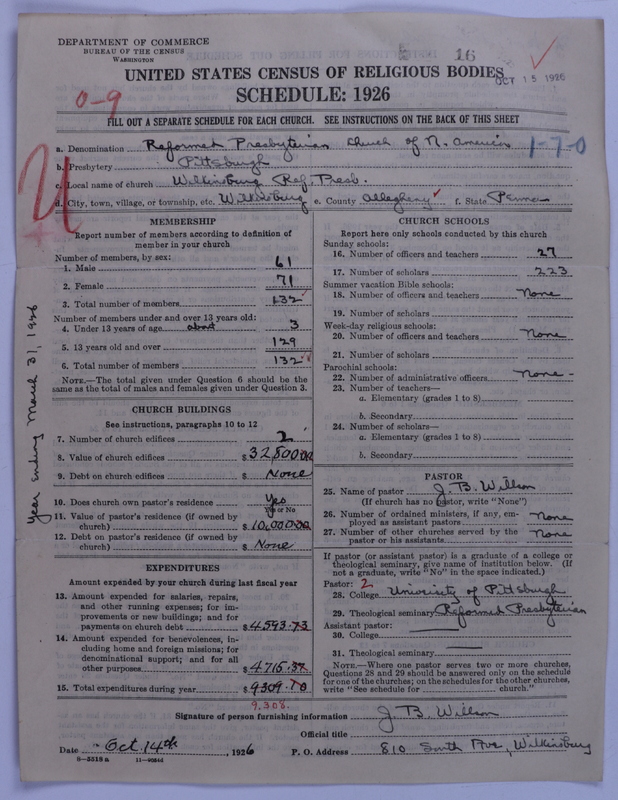 DEPARTMENT OF COMMERCE
BUREAU OF THE CENSUS
WASHINGTON
16
OCT 15 1926
UNITED STATES CENSUS OF RELIGIOUS BODIES
SCHEDULE: 1926
0-9
FILL OUT A SEPARATE SCHEDULE FOR EACH CHURCH. SEE INSTRUCTIONS ON THE BACK OF THIS SHEET
a. Denomination Reformed Presbyterian Church of N. America
1-7-0
b. Presbytery Pittsburgh
c. Local name of church Wilkinsburg Ref. Presb.
d. City, town, village, or township, etc. Wilkinsburg e. County Allegheny f. State Penna
Year ending March 31, 1926
MEMBERSHIP
Report number of members according to definition of
member in your church
Number of members, by sex:
1. Male 61
2. Female 71
3. Total number of members 132
Number of members under and over 13 years old:
4. Under 13 years of age about 3
5. 13 years old and over 129
6. Total number of members 132
NOTE.—The total given under Question 6 should be the
same as the total of males and females given under Question 3.
CHURCH BUILDINGS
See instructions, paragraphs 10 to 12
7. Number of church edifices 2
8. Value of church edifices $ 32,500.00
9. Debt on church edifices $ None
10. Does church own pastor's residence Yes
Yes or No
11. Value of pastor's residence (if owned by
church) $ 10,000.00
12. Debt on pastor's residence (if owned by
church) $ None
EXPENDITURES
Amount expended by your church during last fiscal year
13. Amount expended for salaries, repairs,
and other running expenses; for im-
provements or new buildings; and for
payments on church debt $ 4593.73
14. Amount expended for benevolences, in-
cluding home and foreign missions; for
denominational support; and for all
other purposes $ 4715.37
15. Total expenditures during year $ 9309.10
9,308.
CHURCH SCHOOLS
Report here only schools conducted by this church
Sunday schools:
16. Number of officers and teachers 27
17. Number of scholars 223
Summer vacation Bible schools:
18. Number of officers and teachers None
19. Number of scholars
Week-day religious schools:
20. Number of officers and teachers None
21. Number of scholars
Parochial schools:
22. Number of administrative officers None -
23. Number of teachers—
a. Elementary (grades 1 to 8)
b. Secondary
24. Number of scholars—
a. Elementary (grades 1 to 8)
b. Secondary
PASTOR
25. Name of pastor J. B. Willson
(If church has no pastor, write "None")
26. Number of ordained ministers, if any, em-
ployed as assistant pastors None
27. Number of other churches served by the
pastor or his assistants None
If pastor (or assistant pastor) is a graduate of a college or
theological seminary, give name of institution below. (If
not a graduate, write "No" in the space indicated.)
Pastor: 2
28. College University of Pittsburgh
29. Theological seminary Reformed Presbyterian
Assistant pastor:
30. College
31. Theological seminary
NOTE.—Where one pastor serves two or more churches,
Questions 28 and 29 should be answered only on the schedule
for one of the churches; on the schedules for the other churches,
write "See schedule for church."
Signature of person furnishing information J. B. Willson
Official title
Date Oct. 14th, 1926 P. O. Address 810 South Ave, Wilkinsburg
8—5518 a 11—9056d